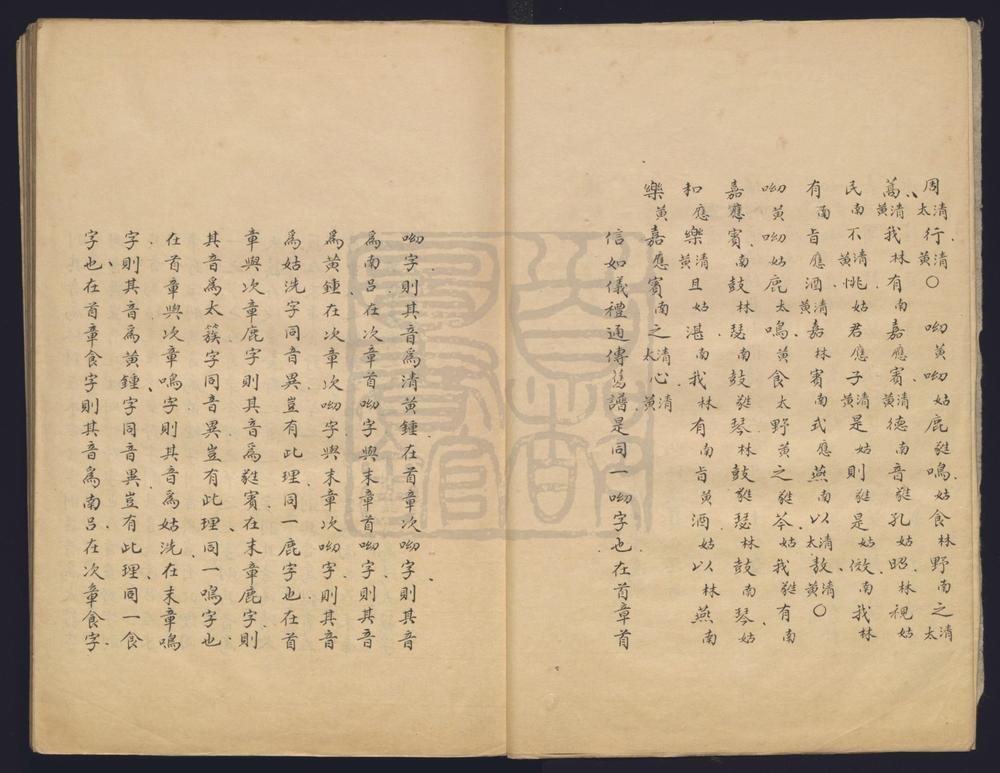 周清太行清黃○呦黃呦姑鹿蕤鳴姑食林野南之清太
蒿清黃我林有南嘉應賓清黃德南音蕤孔姑昭林視姑
民南不清黃恌姑君應子清黃是姑則蕤是姑傚南我林
有南旨應酒清黃嘉林賓南式應燕南以清太敖清黃○
呦黃呦姑鹿太鳴黃食太野黃之蕤芩姑我蕤有南
嘉應賓南鼓林瑟南鼓蕤琴林鼓蕤瑟林鼓南琴姑
和應樂清黃且姑湛南我林有南旨黃酒姑以林燕南
樂黃嘉應賓南之清太心清黃
信如儀禮通傳舊譜是同一呦字也在首章首
呦字則其音為清黃鍾在首章次呦字則其音
為南呂在次章首呦字與末章首呦字則其音
為黃鍾在次章次呦字與末章次呦字則其音
為姑洗字同音異豈有此理同一鹿字也在首
章與次章鹿字則其音為蕤賓在末章鹿字則
其音為太簇字同音異豈有此理同一鳴字也
在首章與次章鳴字則其音為姑洗在末章鳴
字則其音為黃鍾字同音異豈有此理同一食
字也在首章食字則其音為南呂在次章食字